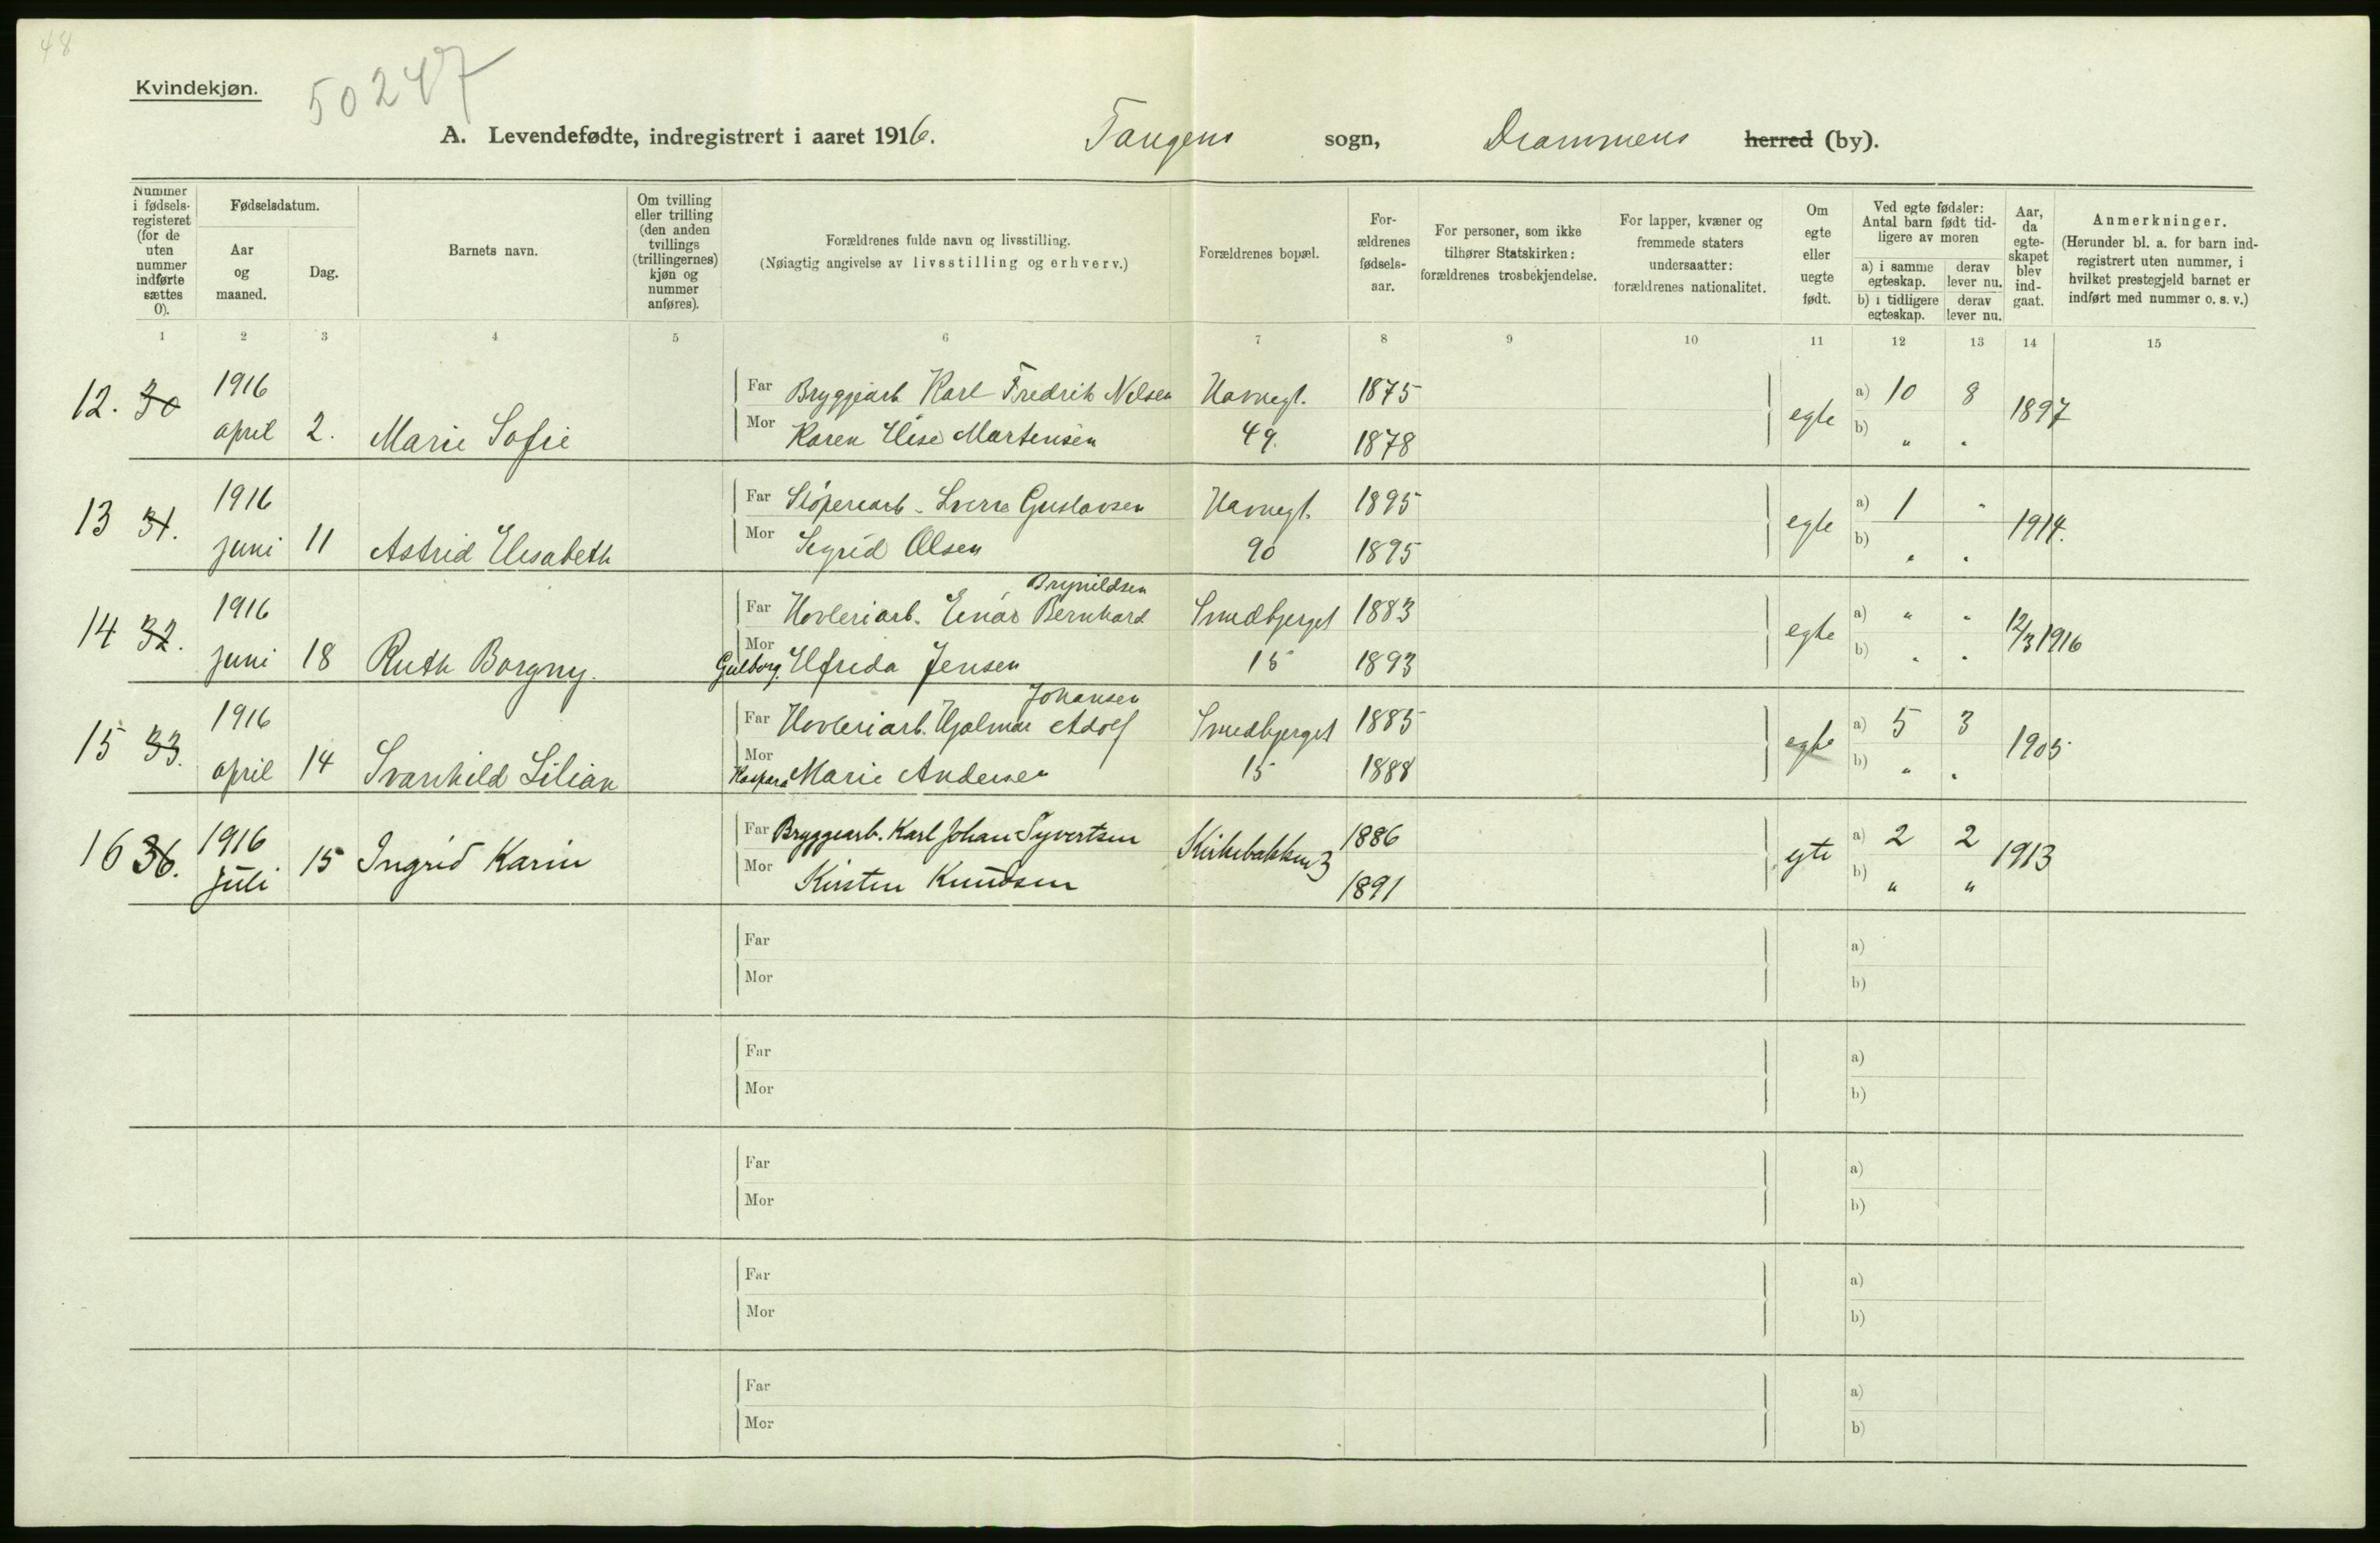 48
Kvindekjøn.
50247
A. Levendefødte, indregistrert i aaret 1916. Tangens sogn, Drammens herred (by).
Nummer i fødsels-registeret (for de uten nummer indførte sættes 0).
Fødselsdatum.
Aar og maaned.
Dag.
Barnets navn.
Om tvilling eller trilling (den anden tvillings (trillingernes) kjøn og nummer anføres).
Forældrenes fulde navn og livsstilling.
(Nøiagtig angivelse av livsstilling og erhverv.)
Forældrenes bopæl.
For-ældrenes fødsels-aar.
For personer, som ikke tilhører Statskirken: forældrenes trosbekjendelse.
For lapper, kvæner og fremmede staters undersaatter: forældrenes nationalitet.
Om egte eller uegte født.
Ved egte fødsler: Antal barn født tid-ligere av moren
a) i samme egteskap. derav lever nu.
b) i tidligere egteskap. derav lever nu.
Aar, da egte-skapet blev ind-gaat.
Anmerkninger.
(Herunder bl. a. for barn ind-registrert uten nummer, i hvilket prestegjeld barnet er indført med nummer o. s. v.)
1 2 3 4 5 6 7 8 9 10 11 12 13 14 15
12. 30 1916 Far Bryggearb Karl Fredrik Nelsen Havnegt. 1875 egte a) 10 8 1897
april 2. Marie Sofie Mor Karen Elise Martensen 49. 1878 b) " "
13 31. 1916 Far Støperiarb. Sverre Gustavsen Havnegt. 1895 egte a) 1 " 1914.
juni 11 Astrid Elisabeth Mor Sigrid Olsen 90 1895 b) " "
Brynildsen
14 32. 1916 Far Høvleriarb. Einar Bernhard Smedbjerget 1883 egte a) " " 12/3 1916
juni 18 Ruth Borgny. Mor Gulborg Elfrida Jensen 15 1893 b) " "
Johansen
15 33. 1916 Far Høvleriarb. Hjalmar Adolf Smedbjerget 1885 egte a) 5 3 1905
april 14 Svanhild Lilian Mor Kaspara Marie Andersen 15 1888 b) " "
16 36. 1916 Far Bryggearb. Karl Johan Syvertsen Kirkebakken 3 1886 egte a) 2 2 1913
juli 15 Ingrid Karin Mor Kirsten Knudsen 1891 b) " "
Far a)
Mor b)
Far a)
Mor b)
Far a)
Mor b)
Far a)
Mor b)
Far a)
Mor b)